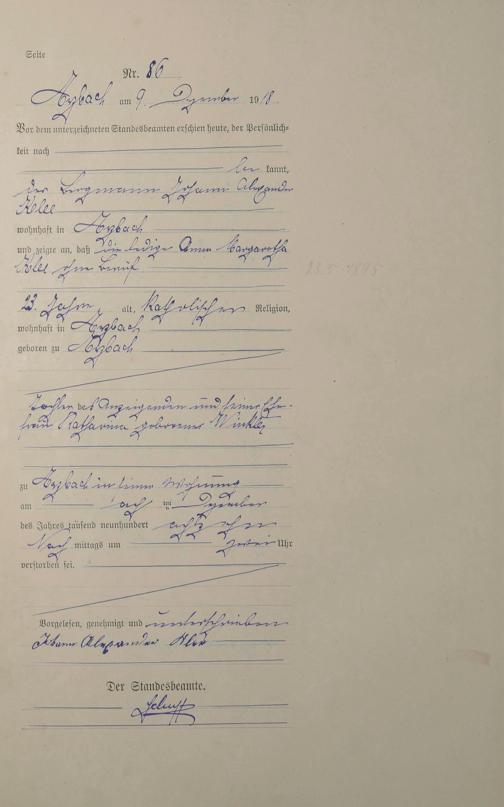 Seite
Nr. 86
Aßbach am 9. Dezember 1918.
Vor dem unterzeichneten Standesbeamten erschien heute, der Persönlich-
keit nach
be kannt,
der Bergmann Johann Alexander
Klee
wohnhaft in
und zeigte an, daß die ledige Anna Margaretha
Klee ohne Beruf
23.5.1895
23 Jahre alt, katholischer Religion,
wohnhaft in
geboren zu
Tochter des Anzeigenden und seiner Ehe-
frau Katharina geborener
zu in seiner Wohnung
am acht im Dezember
des Jahres tausend neunhundert achtzehn
Nach mittags um zwei Uhr
verstorben sei.
Vorgelesen, genehmigt und unterschrieben
Johann Alexander Klee
Der Standesbeamte.